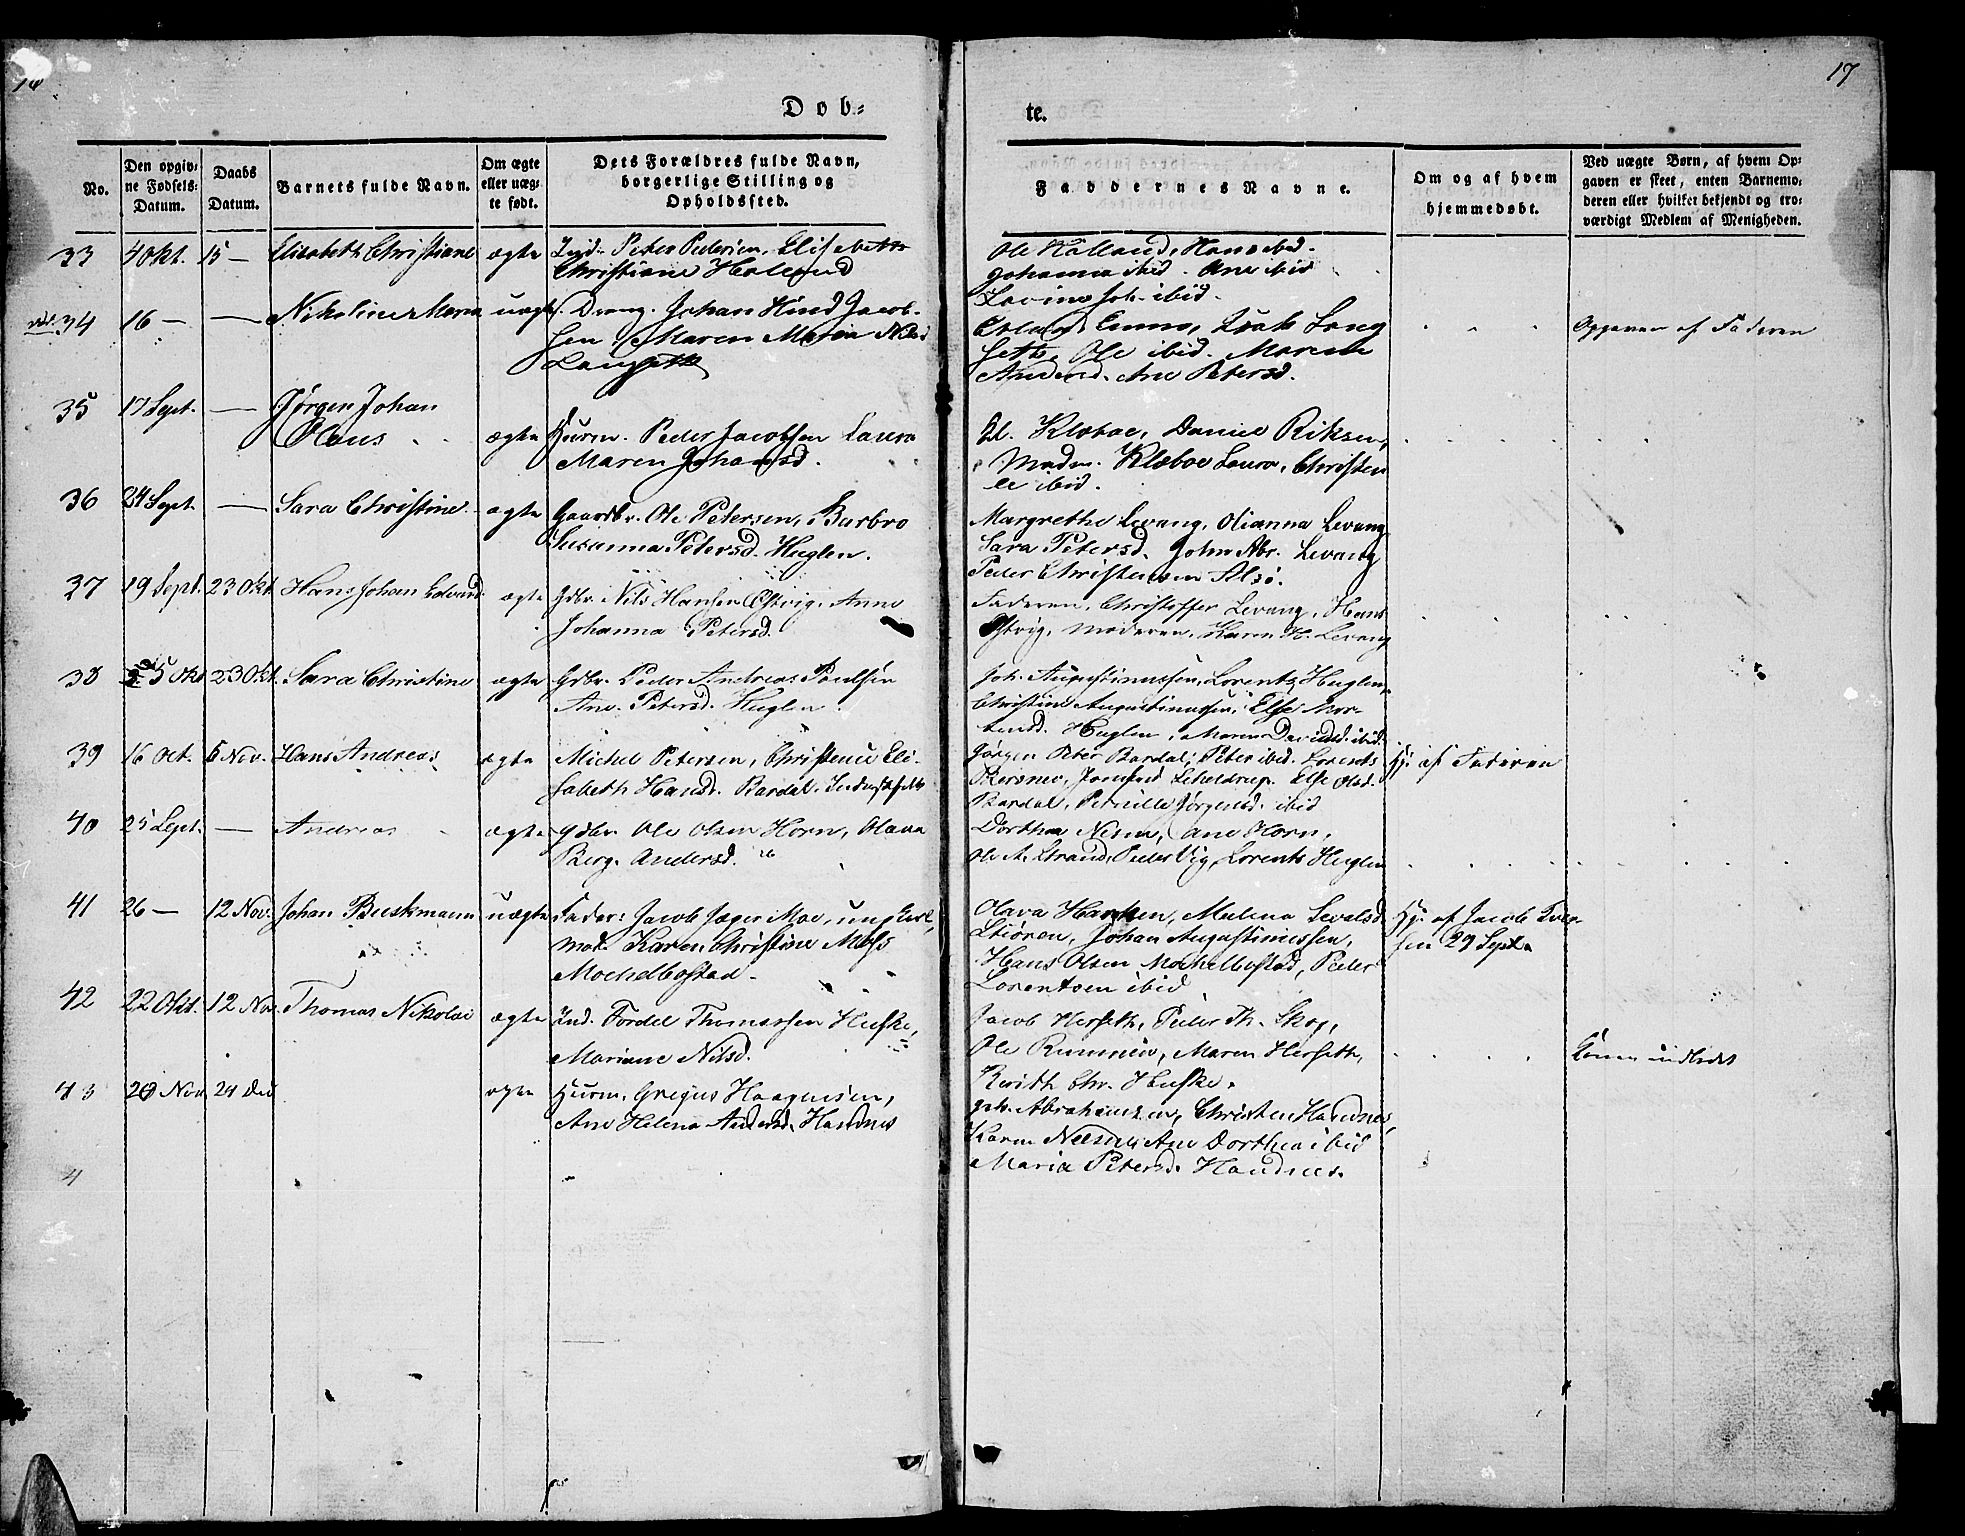 16
17
Dob-
te.
No.
Den opgiv-
ne Fødsels-
Datum.
Daabs
Datum.
Barnets fulde Navn.
Om ægte
eller uæg-
te født.
Dets Forældres fulde Navn,
borgerlige Stilling og
Opholdssted.
Faddernes Navne.
Om og af hvem
hjemmedøbt.
Ved uægte Børn, af hvem Op-
gaven er skeet, enten Barnemo-
deren eller hvilket bekjendt og tro-
værdigt Medlem af Menigheden.
33 4 Okt. 15 — Elisabeth Christiane ægte Ind. Peter Pedersen, Elisabeth
Christiane Holland
Ole Holland, Hans ibid.
Johanna ibid. Ane ibid
Lovina Joh. ibid.
34 16 — — Nikoline Maria uægte Dreng. Johan Hind Jacob-
sen Maren Maria Nilsd
Langseth
Emma, Isak Lang
seth, Ole ibid. Maren
Amundsd. Ane Petersd.
Opgaven af Faderen
35 17 Sept. — Jørgen Johan
Olaus ægte Huusm. Peder Jacobsen Laura
Maren Johansd.
Kl. Klæboe, Daniel Riksen,
Madm. Klæboe Laura, Christen
ibid.
36 24 Sept. — Sara Christine ægte Gaardbr. Ole Petersen, Barbro
Susanna Petersd. Huglen.
Margrethe Levang, Olianna Levang
Sara Petersd. John Abr. Levang
Peder Christensen Alsø.
37 19 Sept. 23 Okt. Hans Johan Edvard ægte Gdbr. Nils Hansen Østvig, Anne
Johanna Petersd.
Faderen, Christoffer Levang, Hans
Østvig, Moderen, Karen H. Levang
38 5 Okt 23 Okt. Sara Christine ægte Gdbr. Peder Andreas Paulsen
Ane Petersd. Huglen
Joh. Augustinussen, Lorents Huglen,
Christine Augustinussen, Else Mor-
tensd. Huglen, Maren Davidsd. ibid.
39 16 Oct. 6 Nov. Hans Andreas ægte Michel Petersen, Christence Eli-
sabeth Hansd. Bardal. Inderst
Jørgen Peter Bardal, Peter ibid. Lorents
Else Olsd.
Bardal, Pernille Jørgensd. ibid
Hj. af Faderen
40 25 Sept. — Andreas ægte Gdbr. Ole Olsen Horn, Olava
Berg. Andersd.
Dorthea Ane Horn,
Ole A. Strand, Peder Vig, Lorents Huglen
41 26 — 12 Nov. Johan Buskmann uægte Fader: Jacob Jæger Moe, ungkarl,
Mod. Karen Christine
Mochelbostad.
Olava Hansen,
Johan Augustinussen,
Hans Olsen Mochelbostad, Peder
Lorentsen ibid
Hj. af Jacob
sen 29 Sept.
42 22 Okt. 12 Nov. Thomas Nikolai ægte Ind. Tordel Thomassen Hufske,
Mariane Nilsd.
Jacob Herseth, Peder Th. Skog,
Ole Maren Herseth,
Berith Chr. Hufske.
Konen indledet
43 20 Nov 24 Dec ægte Huusm. Gregus Haagensen,
Ane Helena Andersd. Handnes
Joh. Abrahamsen, Christen Handnes,
Karen Ane Dorthea ibid
Maria Petersd. Handnes.
4